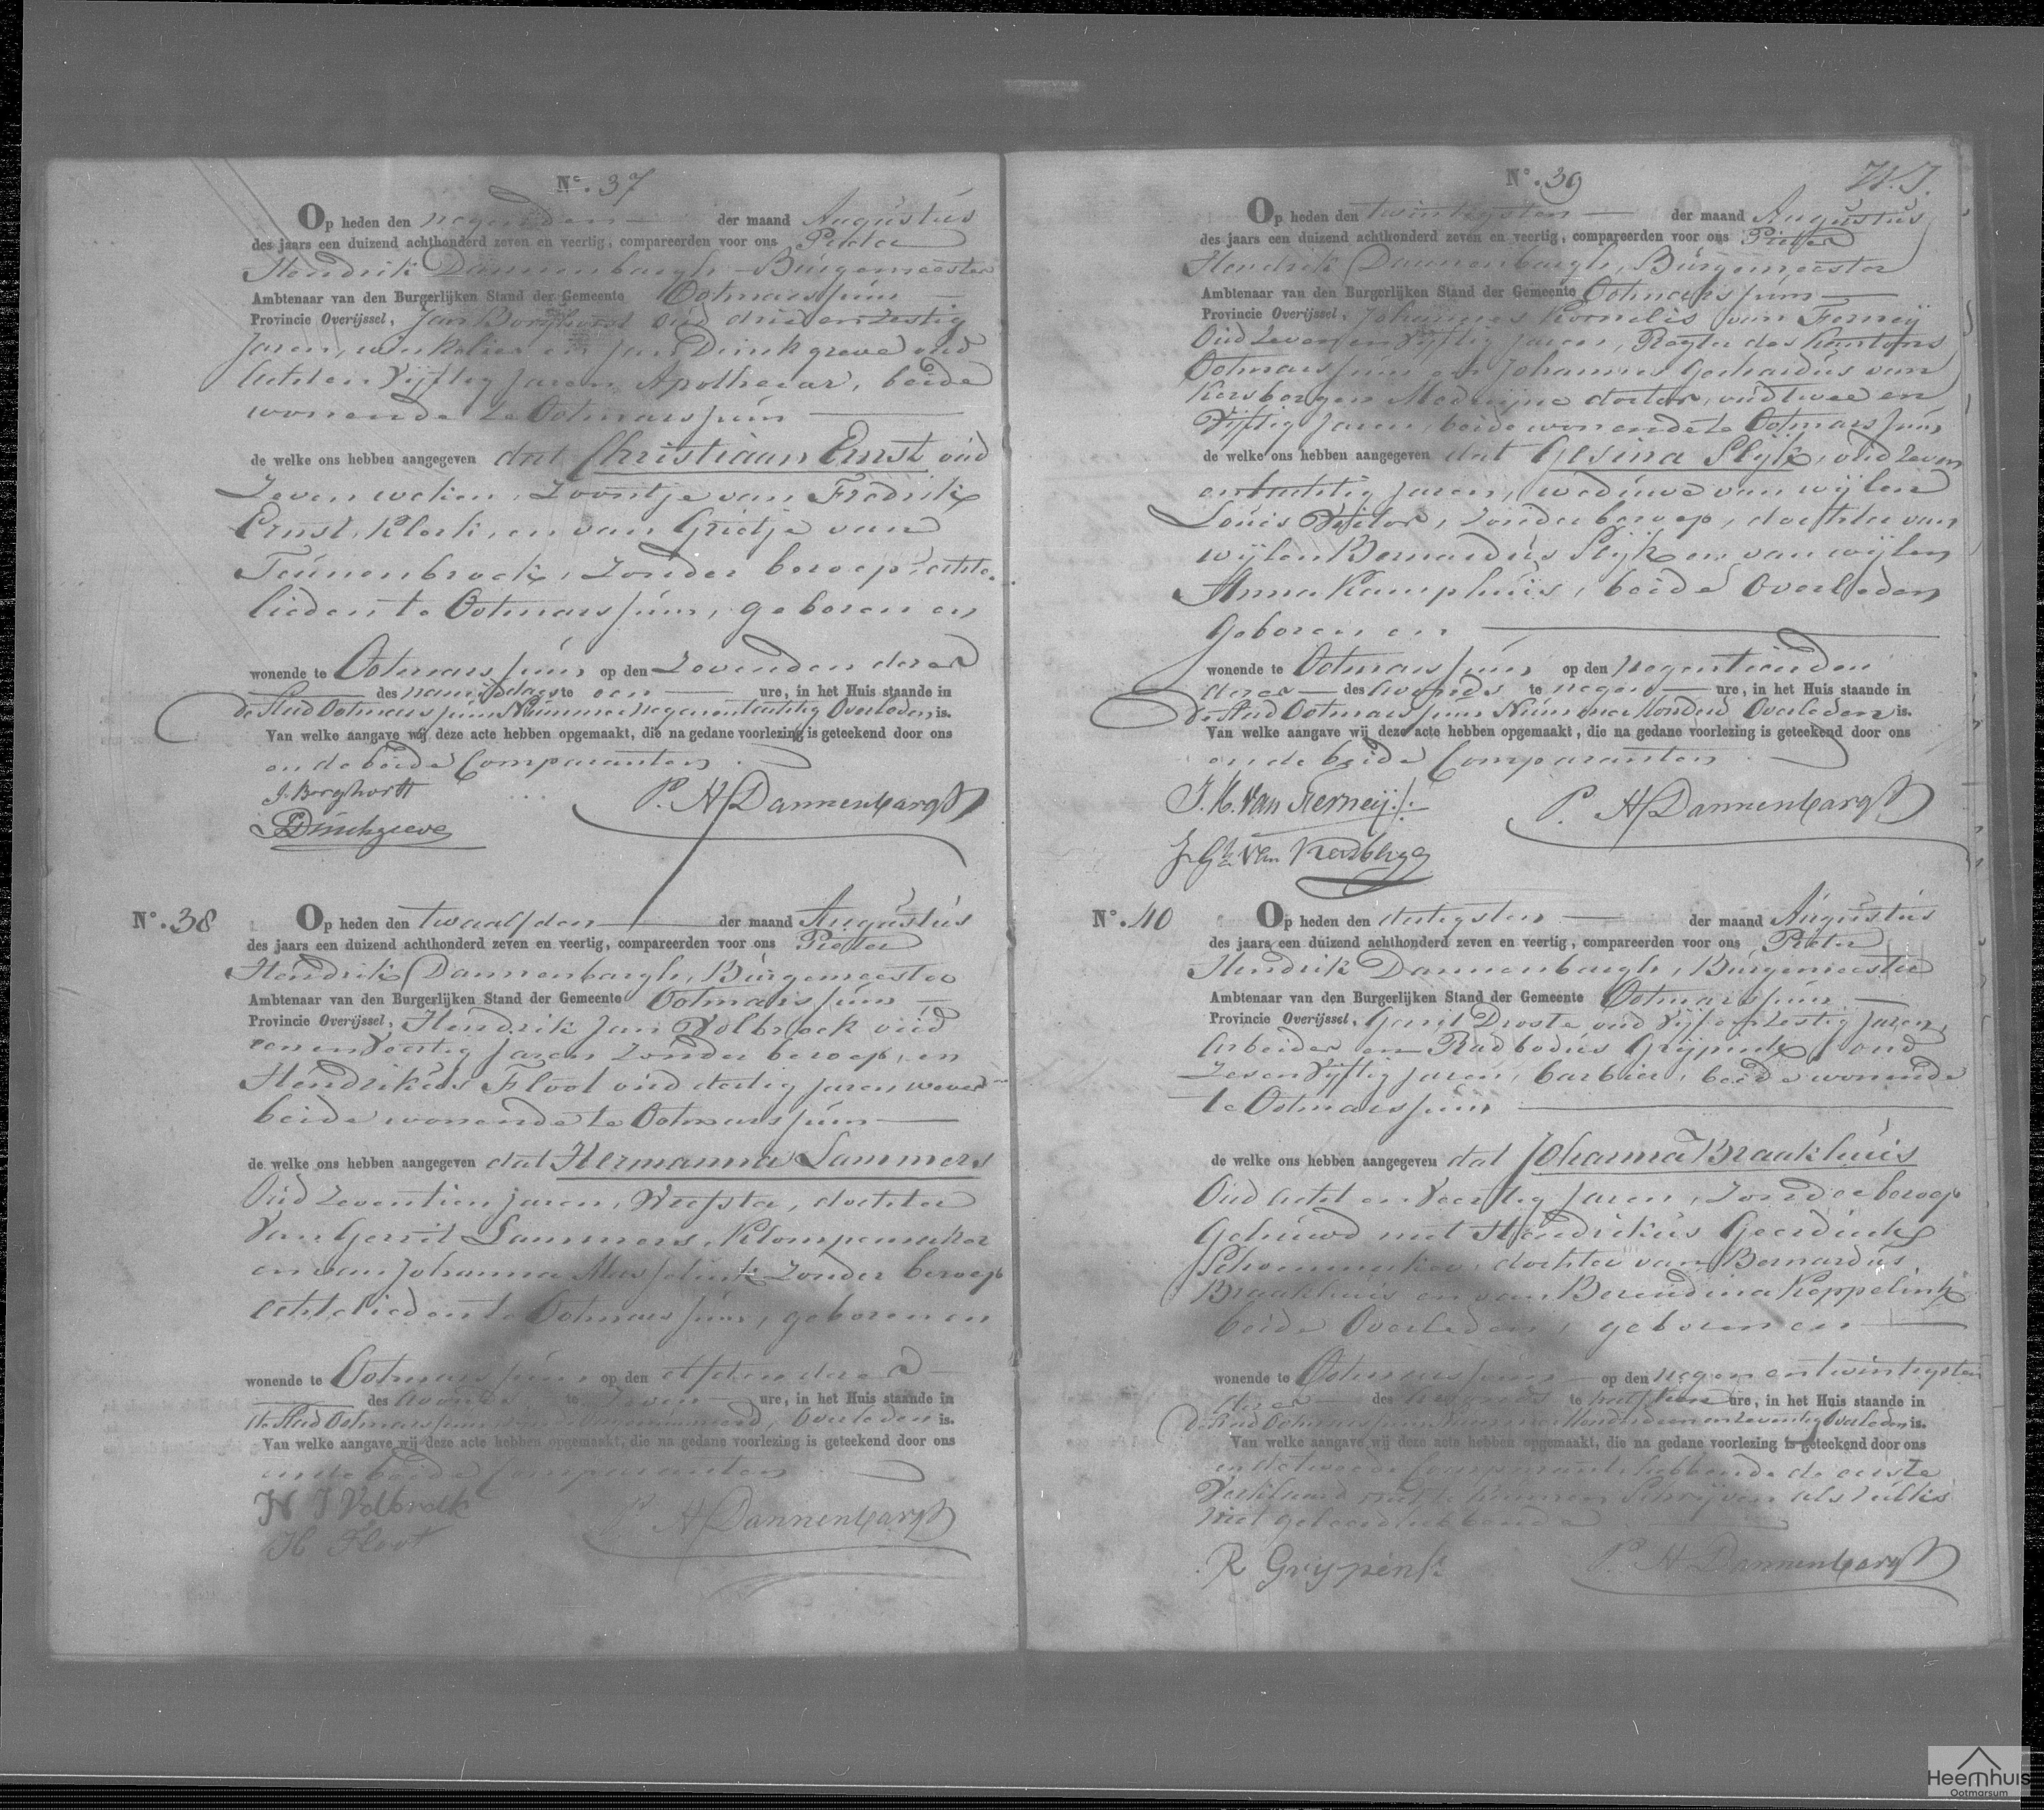 N°. 37
Op heden den negenden der maand Augustus
des jaars een duizend achthonderd zeven en veertig, compareerden voor ons Pieter
Hendrik Dannenbargh Burgemeester
Ambtenaar van den Burgerlijken Stand der Gemeente Ootmarssum
Provincie Overijssel, Jan Borghorst oud drie en zestig
Jaren, winkelier en Jan Dinkgreve oud
acht en Vijftig Jaren Apothecar, beide
wonende te Ootmarssum
de welke ons hebben aangegeven dat Christiaan Ernst oud
Zeven weken, Zoontje van Fredrik
Ernst, Klerk, en van Grietje van
Teunenbroek, Zonder beroep, echte
lieden te Ootmarssum, geboren en
wonende te Ootmarssum op den Zevenden dezer
des namiddags te een ure, in het Huis staande in
de Stad Ootmarssum Nummer negenentachtig Overleden is.
Van welke aangave wij deze acte hebben opgemaakt, die na gedane voorlezing is geteekend door ons
en de beide Comparanten
J. Borghorst
P. H Dannenbargh
Dinkgreve
N°. 38
Op heden den twaalfden der maand Augustus
des jaars een duizend achthonderd zeven en veertig, compareerden voor ons Pieter
Hendrik Dannenbargh, Burgemeester
Ambtenaar van den Burgerlijken Stand der Gemeente Ootmarssum
Provincie Overijssel, Hendrik Jan Volbroek oud
een en Veertig Jaren Zonder beroep, en
Hendrikus Floot oud dertig Jaren, wever
beide wonende te Ootmarssum
de welke ons hebben aangegeven dat Hermanna Lammers
Oud Zeventien jaren, Weefster, dochter
Van Gerrit Lammers, Klompemaker
en van Johanna Zonder beroep
echtelieden te Ootmarssum, geboren en
wonende te Ootmarssum op den elfden dezer
des avonds te Zeven ure, in het Huis staande in
de Stad Ootmarssum Overleden is.
Van welke aangave wij deze acte hebben opgemaakt, die na gedane voorlezing is geteekend door ons
en de beide Comparanten
H J Volbroek
P. H Dannenbargh
H Floot
N°. 39
Op heden den twintigsten der maand Augustus
des jaars een duizend achthonderd zeven en veertig, compareerden voor ons Pieter
Hendrik Dannenbargh, Burgemeester
Ambtenaar van den Burgerlijken Stand der Gemeente Ootmarssum
Provincie Overijssel, Johannes Kornelis van Ferneij
Oud Zeven en Vijftig Jaren, Regter des Kantons
Ootmarssum en Johannes Gerhardus van
Kersbergen Medicijne doctor, oud twee en
Vijftig Jaren, beide wonende te Ootmarssum
de welke ons hebben aangegeven dat Gesina Slijk, oud Zeven
en tachtig Jaren, weduwe van wijlen
Louis, Zonder beroep, dochter van
wijlen Bernardus Slijk en van wijlen
Anna Kamphuis, beide Overleden
Geboren en
wonende te Ootmarssum op den negentienden
dezer des avonds te negen ure, in het Huis staande in
de Stad Ootmarssum Nummer Honderd Overleden is.
Van welke aangave wij deze acte hebben opgemaakt, die na gedane voorlezing is geteekend door ons
en de beide Comparanten
J. K. van Ferneij
P. H Dannenbargh
J Gh van Kersbergen
N°. 40
Op heden den dertigsten der maand Augustus
des jaars een duizend achthonderd zeven en veertig, compareerden voor ons Pieter
Hendrik Dannenbargh, Burgemeester
Ambtenaar van den Burgerlijken Stand der Gemeente Ootmarssum
Provincie Overijssel, Gerrit Droste oud Vijf en Zestig Jaren,
Arbeider en Radbodus Grijpink, oud
Zes en Vijftig Jaren, barbier, beide wonende
te Ootmarssum
de welke ons hebben aangegeven dat Johanna Braakhuis
Oud acht en Veertig Jaren, Zonder beroep
Gehuwd met Hendrikus Geerdink
Schoenmaker, dochter van Bernardus
Braakhuis en van Berendina Keppelink
beide Overleden, geboren en
wonende te Ootmarssum op den negen en twintigsten
dezer des te half tien ure, in het Huis staande in
de Stad Ootmarssum Overleden is.
Van welke aangave wij deze acte hebben opgemaakt, die na gedane voorlezing is geteekend door ons
en de tweede Comparant hebbende de eerste
Verklaard niet te kunnen Schrijven als Zulks
niet geleerd hebbende
R Grypink
P. H Dannenbargh
Heemhuis
Ootmarsum